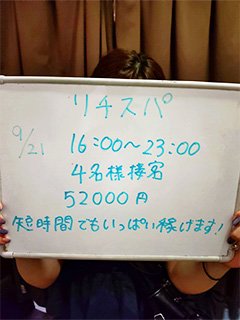 リチスパ
9/21
16:00～23:00
4名様接客
52000円
短時間でもいっぱい稼げます!